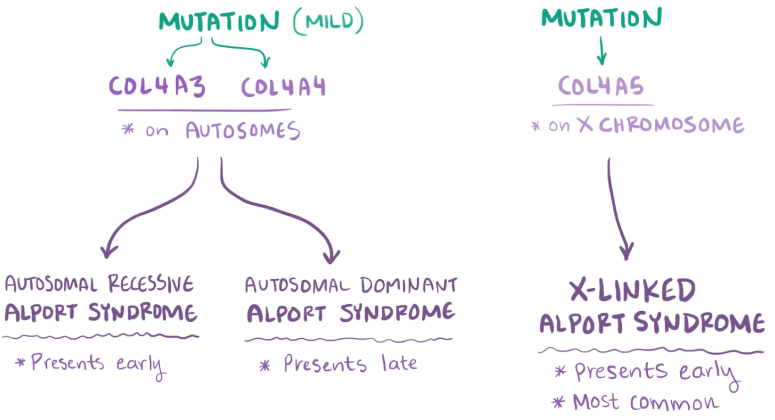 MUTATION (MILD)
COL4A3 COL4A4
* on AUTOSOMES
AUTOSOMAL RECESSIVE
ALPORT SYNDROME
* Presents early
AUTOSOMAL DOMINANT
ALPORT SYNDROME
* Presents late
MUTATION
COL4A5
* on X CHROMOSOME
X-LINKED
ALPORT SYNDROME
* Presents early
* Most common